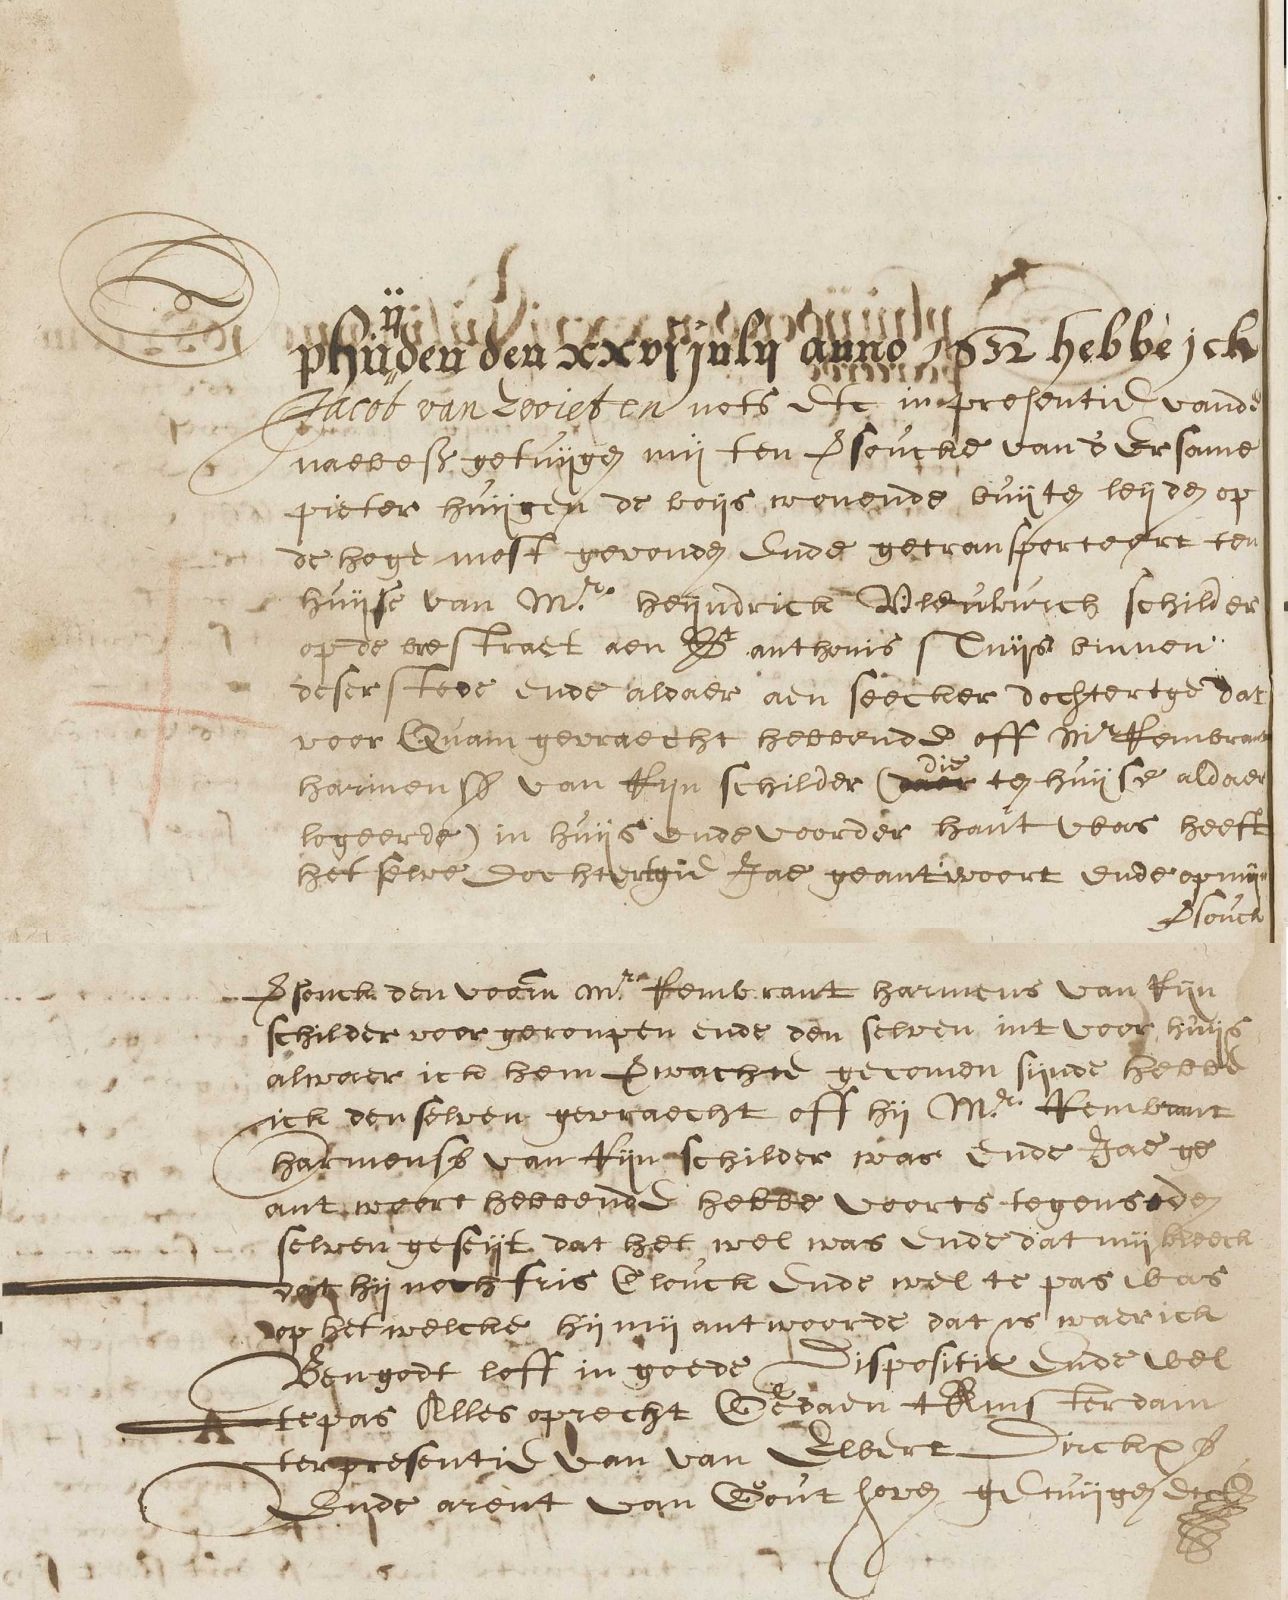 Op huijden den xxvi julij anno 1632 hebbe jck
Jacob van Zwieten nots etc in presentie vande
naebesz getuijgen mij ten versoucke vande Ersame
pieter huijgen de boijs wonende buijten leijden op
de hoge most gevonden Ende getransporteert ten
huijse van Mr. heijndrick Vlenburch schilder
op de breestraet aen St anthonis sluijs binnen
deser stede ende aldaer aen seecker dochtertge dat
voor Quam gevraecht hebbende off Mr Rembrant
harmensz van Rijn schilder (die ten huijse aldaer
logeerde) in huijs ende voorder hant was heeft
het selve dochtertgie Jae geantwoort ende op mijn
versouck
versouck den voorn Mr. Rembrant harmens van Rijn
schilder voor geroupen ende den selven int voor huijs
alwaer ick hem verwachte gecomen sijnde hebbe
ick den selven gevraecht off hij Mr. Rembrant
harmensz van Rijn schilder was Ende Jae ge
antwoort hebbende hebbe voorts tegens den
selven geseijt dat het wel was Ende dat mij bleeck
dat hij noch fris Clouck Ende wel te pas was
op het welcke hij mij antwoorde dat is waer ick
Ben godt loff in goede Dispositie Ende wel
te pas Alles oprecht Gedaen t Amsterdam
ter presentie van van Elbert Dirckxsz
Ende arent van Gouthoven getuijgen etc